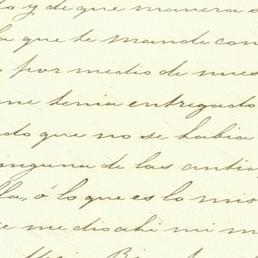 y de que manera
que te mande con
por medio de
me tenia entregado
do que no se habia
ninguna de las
ó lo que es lo mis
me dio ahi mi m